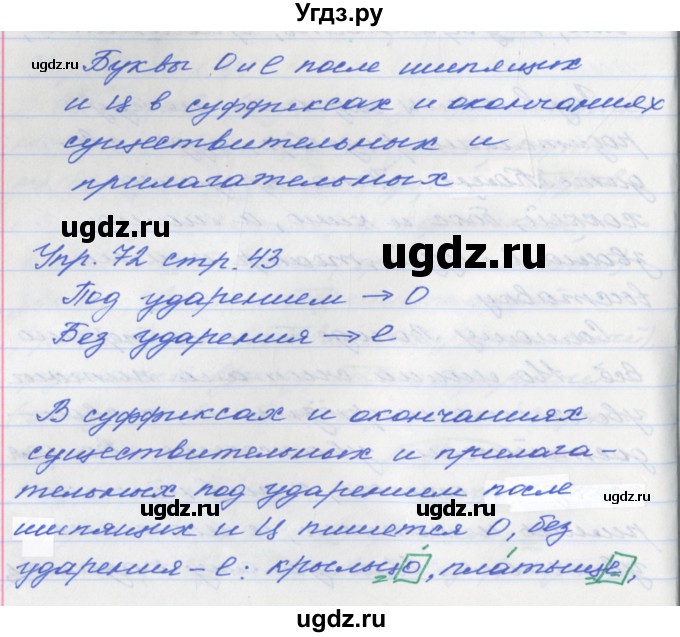 Угдз.ру
ugdz.ru
Буквы О и е после шипящих
и Ц в суффиксах и окончаниях
существительных и
прилагательных
ugdz.ru
ugdz.ru
ugdz.ru
Упр. 72 стр. 43
Под ударением → О
Без ударения → е
ugdz.ru
ugdz.ru
В суффиксах и окончаниях
существительных и прилага-
тельных под ударением после
ugdz.ru
ugdz.ru
ugdz.ru
шипящих и Ц пишется О, без
ударения - е: крыльцо́, пла́тьице,
ugdz.ru
ugdz.ru
ugdz.ru